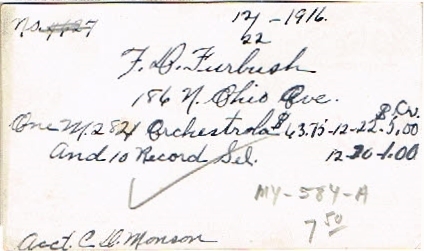 No. 4427
12/22 - 1916.
F. D. Furbush
186 N. Ohio Ave.
B. Cr.
One M. 2821 Orchestrola $43.75-12-22-5.00
And 10 Record Sel. 12-30-1.00
MY-584-A
7 50
Acct. C. D. Monson